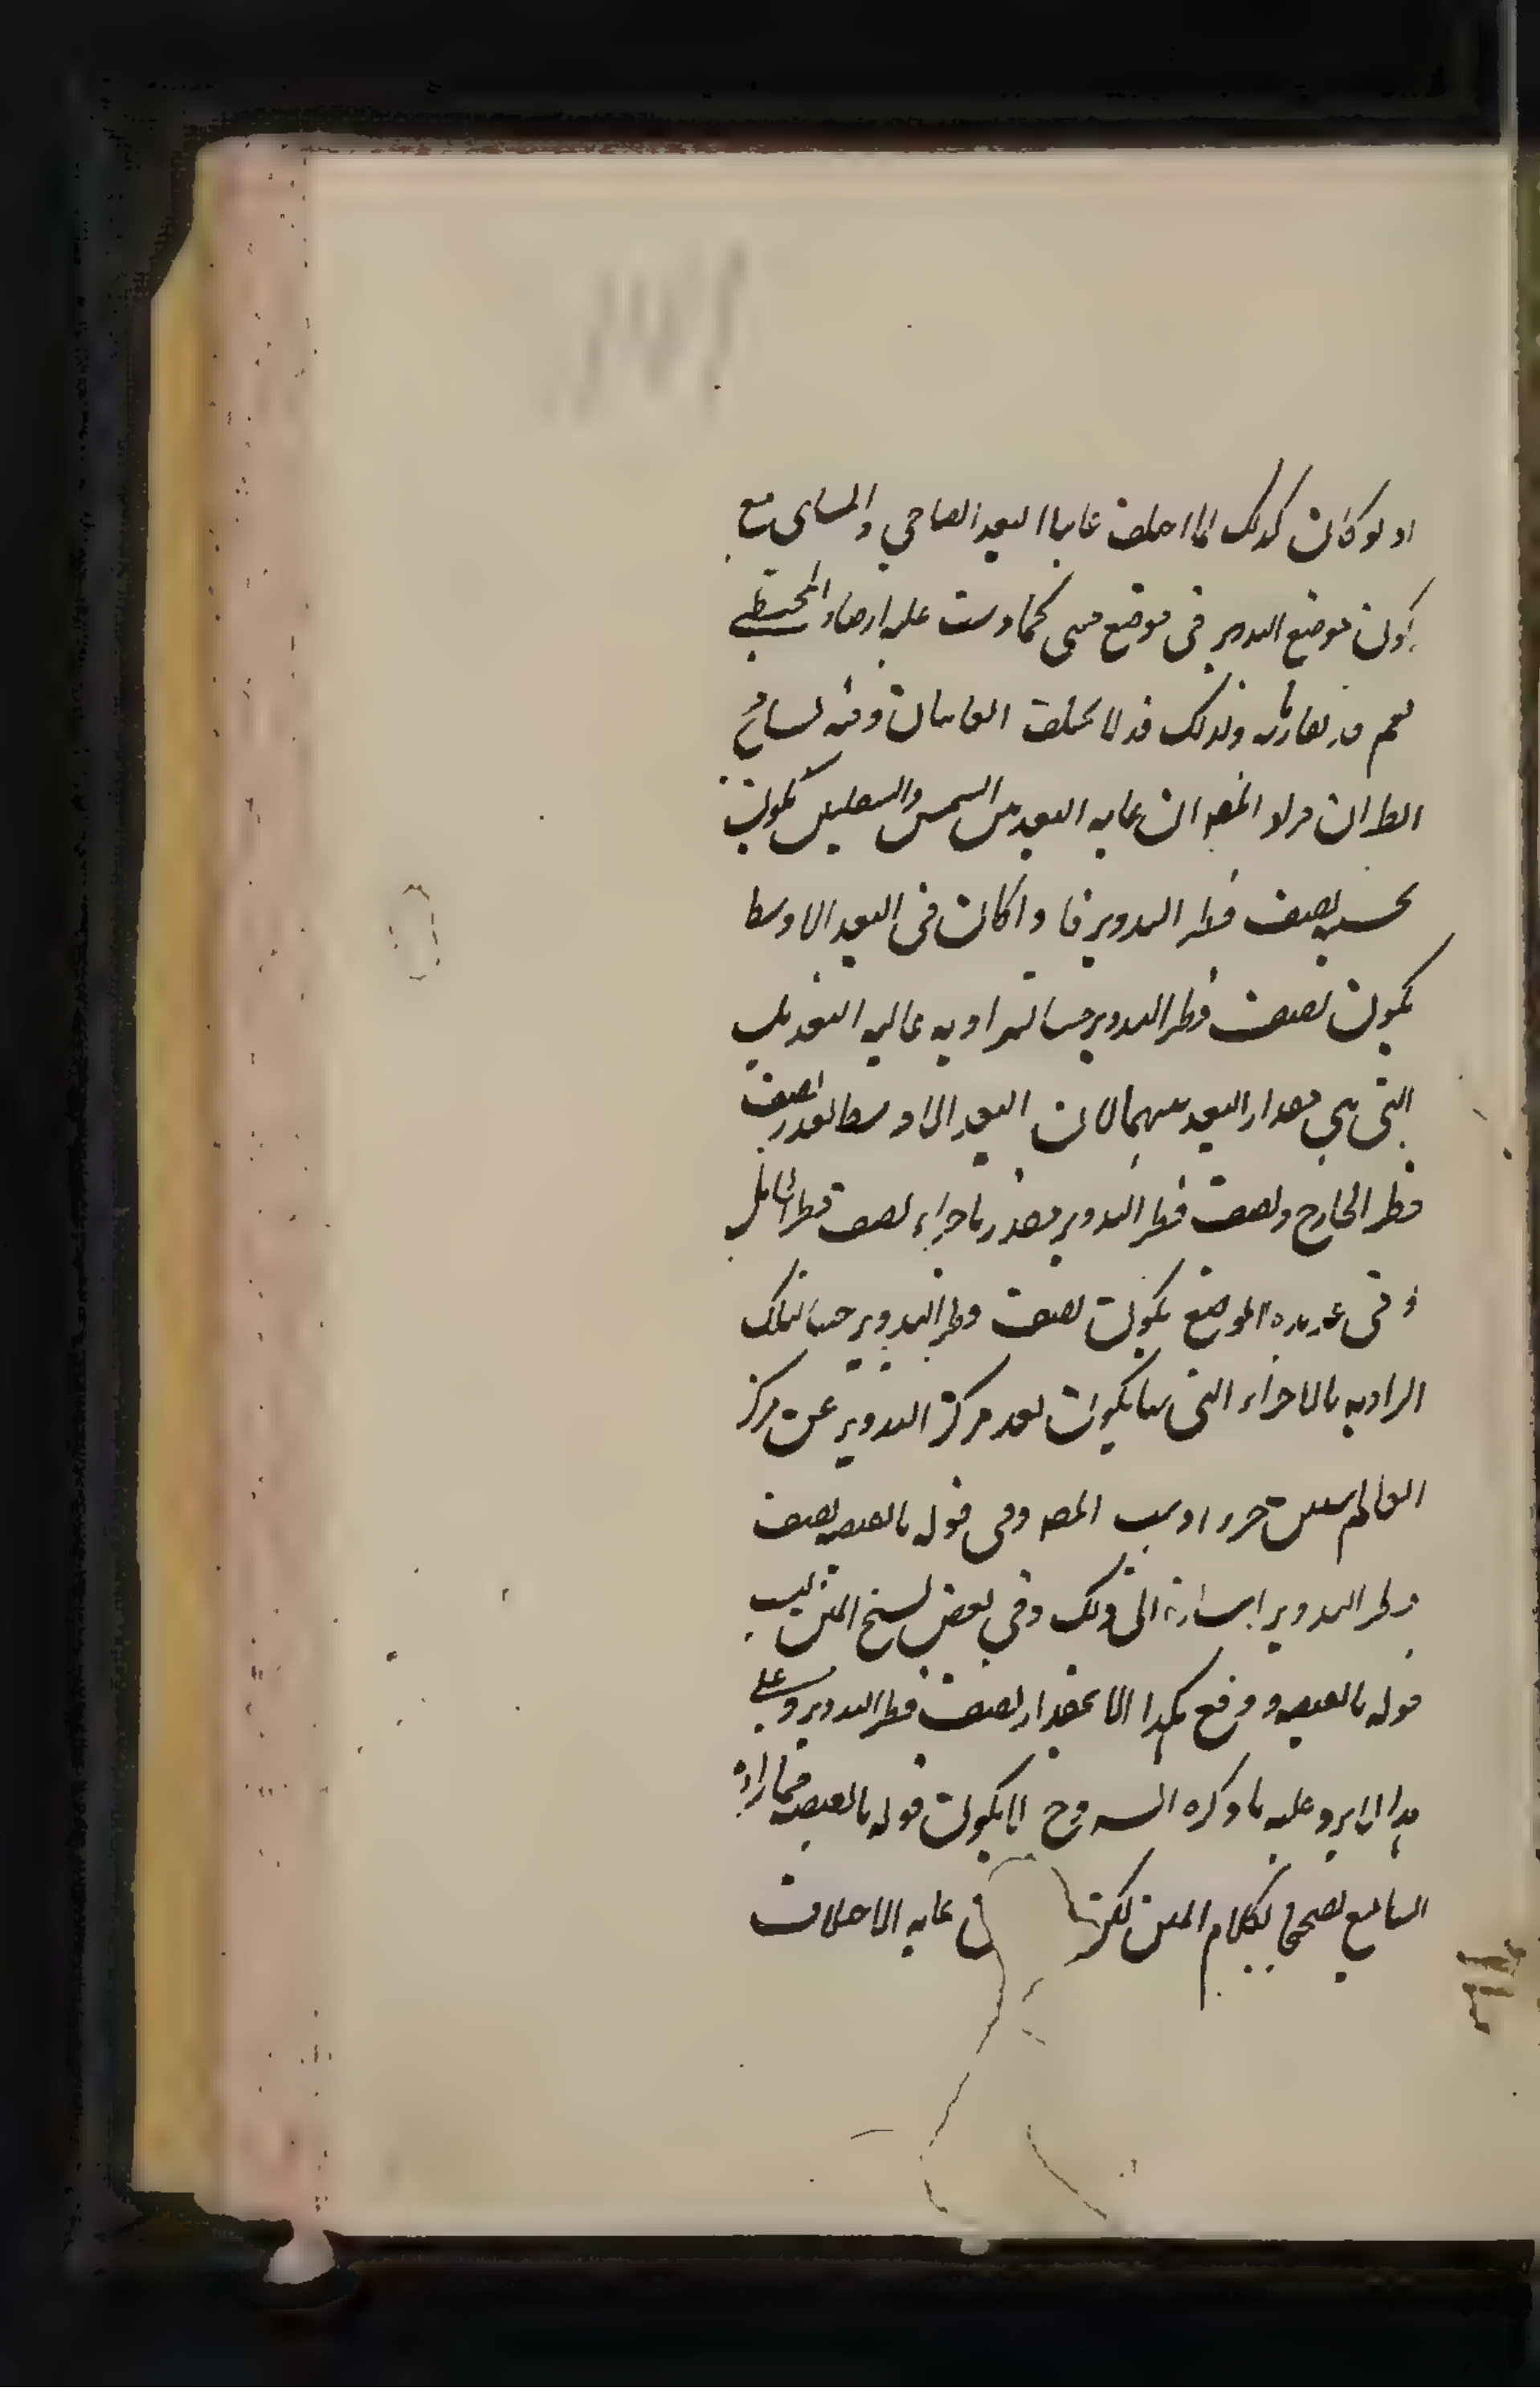 اذ لو كان كذلك لما اختلف غايتا البعد الصباحي والمسائي مع
كون موضع التدوير في موضع معين كما دلت عليه ارصاد المجسطي
نعم قد تقاربه ولذلك قد لا يختلف الغايتان وفيه تسامح
الظ ان مراد المصه ان غاية البعد بين الشمس والسفليين يكون
بحسب نصف قطر التدوير فاذا كان في البعد الاوسط
يكون نصف قطر التدوير جيبا لزاوية غاية التعديل
التي هي مقدار البعد بينهما لان البعد الاوسط بقدر نصف
قطر الخارج ونصف قطر التدوير مقدر باجزاء نصف قطر الحامل
وفي غير هذه المواضع يكون نصف قطر التدوير جيبا لتلك
الزاوية بالاجزاء التي بها يكون بعد مركز التدوير عن مركز
العالم ستين جزءا المصه وفي قوله بالقياس نصف
قطر التدوير اشارة الى ذلك وفي بعض نسخ المتن ليس
قوله ووقع هكذا الا بمقدار نصف قطر التدوير وعلى
هذا لا يرد عليه ما ذكره الشروح لا يكون قوله مما زاده
السامع تصحيحا لكلام المتن لكن غاية الاختلاف